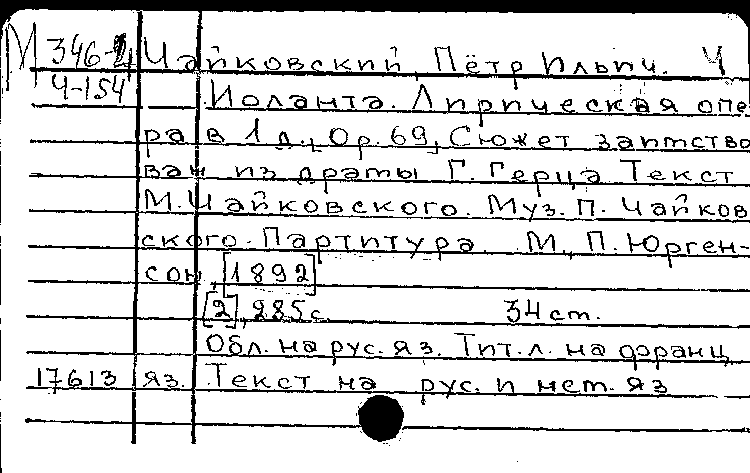 М 346-4 Чайковский, Пётр Ильич. Ч
Ч-154 Иоланта. Лирическая опе
ра в 1 д., Ор. 69, Сюжет заимство
ван из драмы Г. Герца Текст
М. Чайковского. Муз. П. Чайков
ского. Партитура. М., П. Юрген-
сон, [1892]
[2], 285 с. 34 см.
Обл. на рус. яз. Тит. л. на франц
17613 яз. Текст на рус. и нем. яз